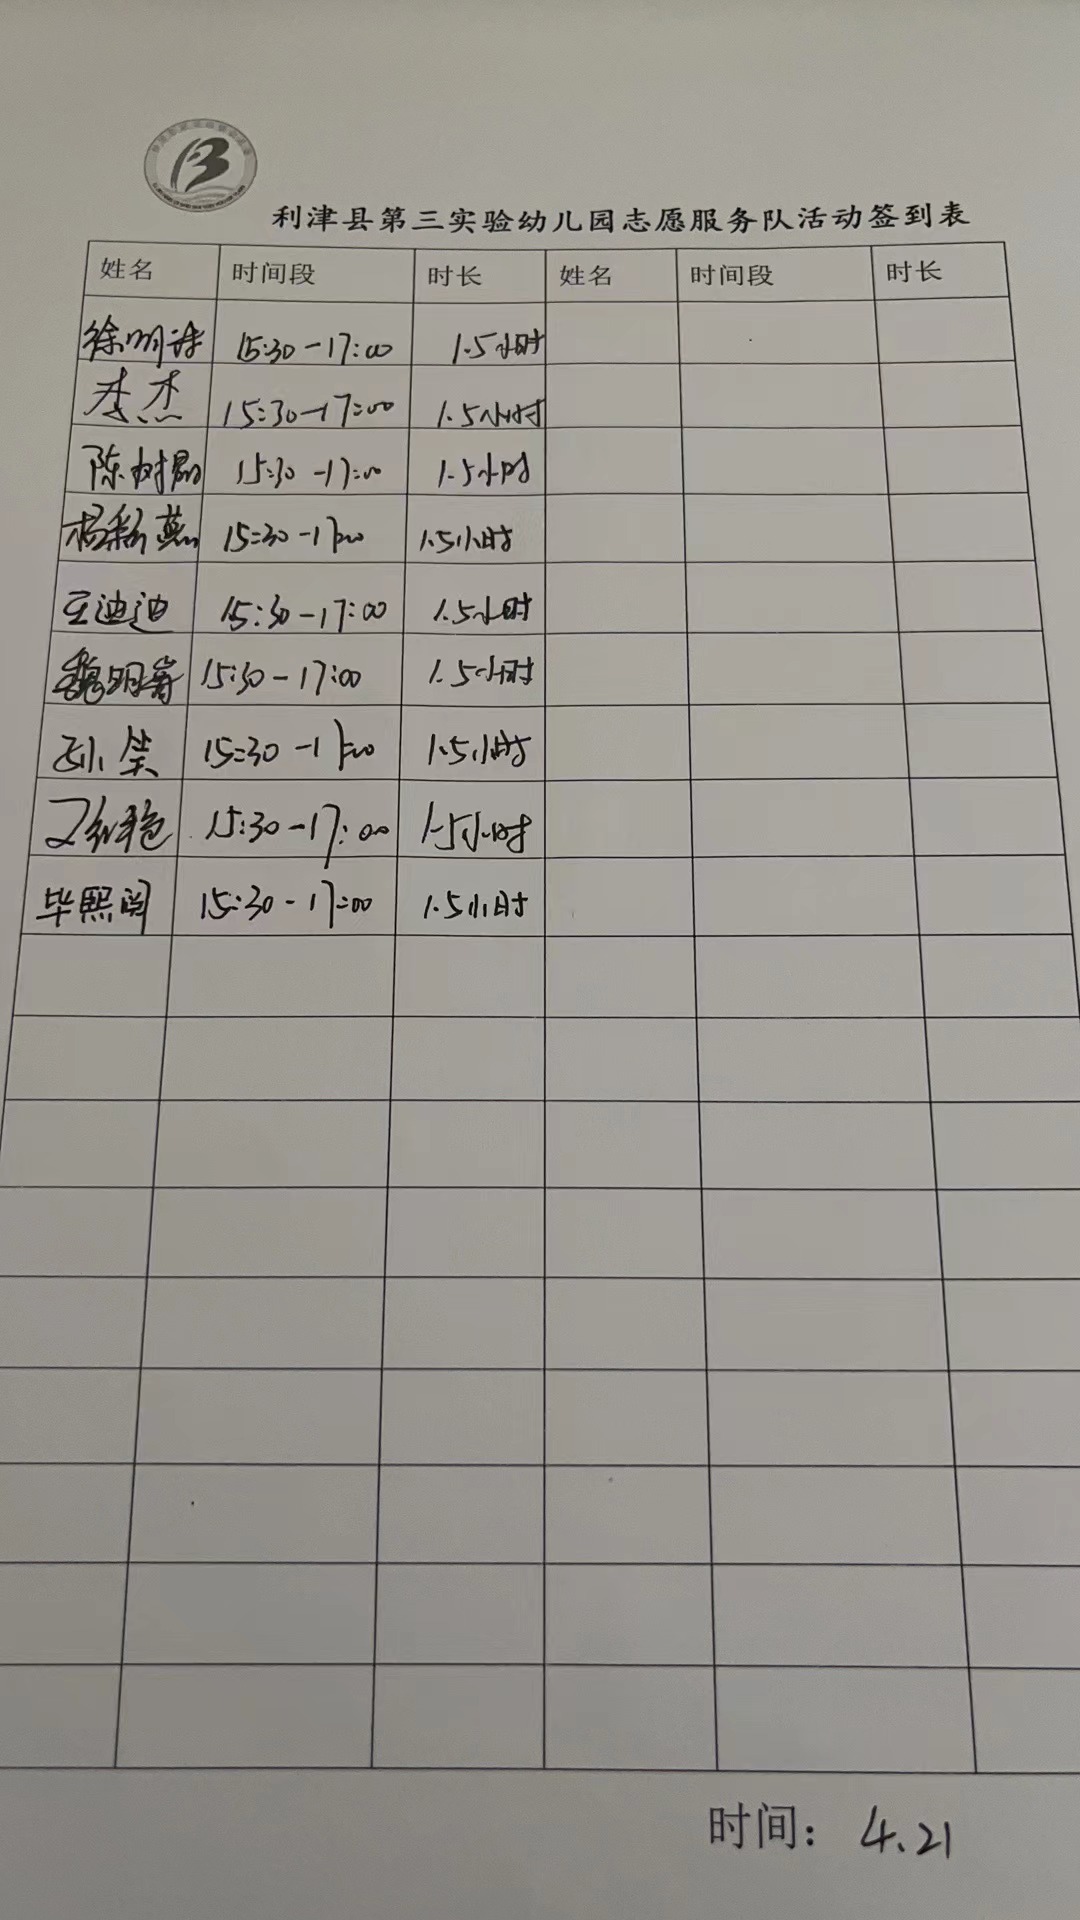 利津县第三实验幼儿园志愿服务队活动签到表
姓名 时间段 时长 姓名 时间段 时长
徐明 15:30-17:00 1.5小时
李杰 15:30-17:00 1.5小时
陈树 15:30-17:00 1.5小时
杨彩燕 15:30-17:00 1.5小时
王迪迪 15:30-17:00 1.5小时
魏明 15:30-17:00 1.5小时
孙笑 15:30-17:00 1.5小时
15:30-17:00 1.5小时
毕熙闵 15:30-17:00 1.5小时
时间: 4.21